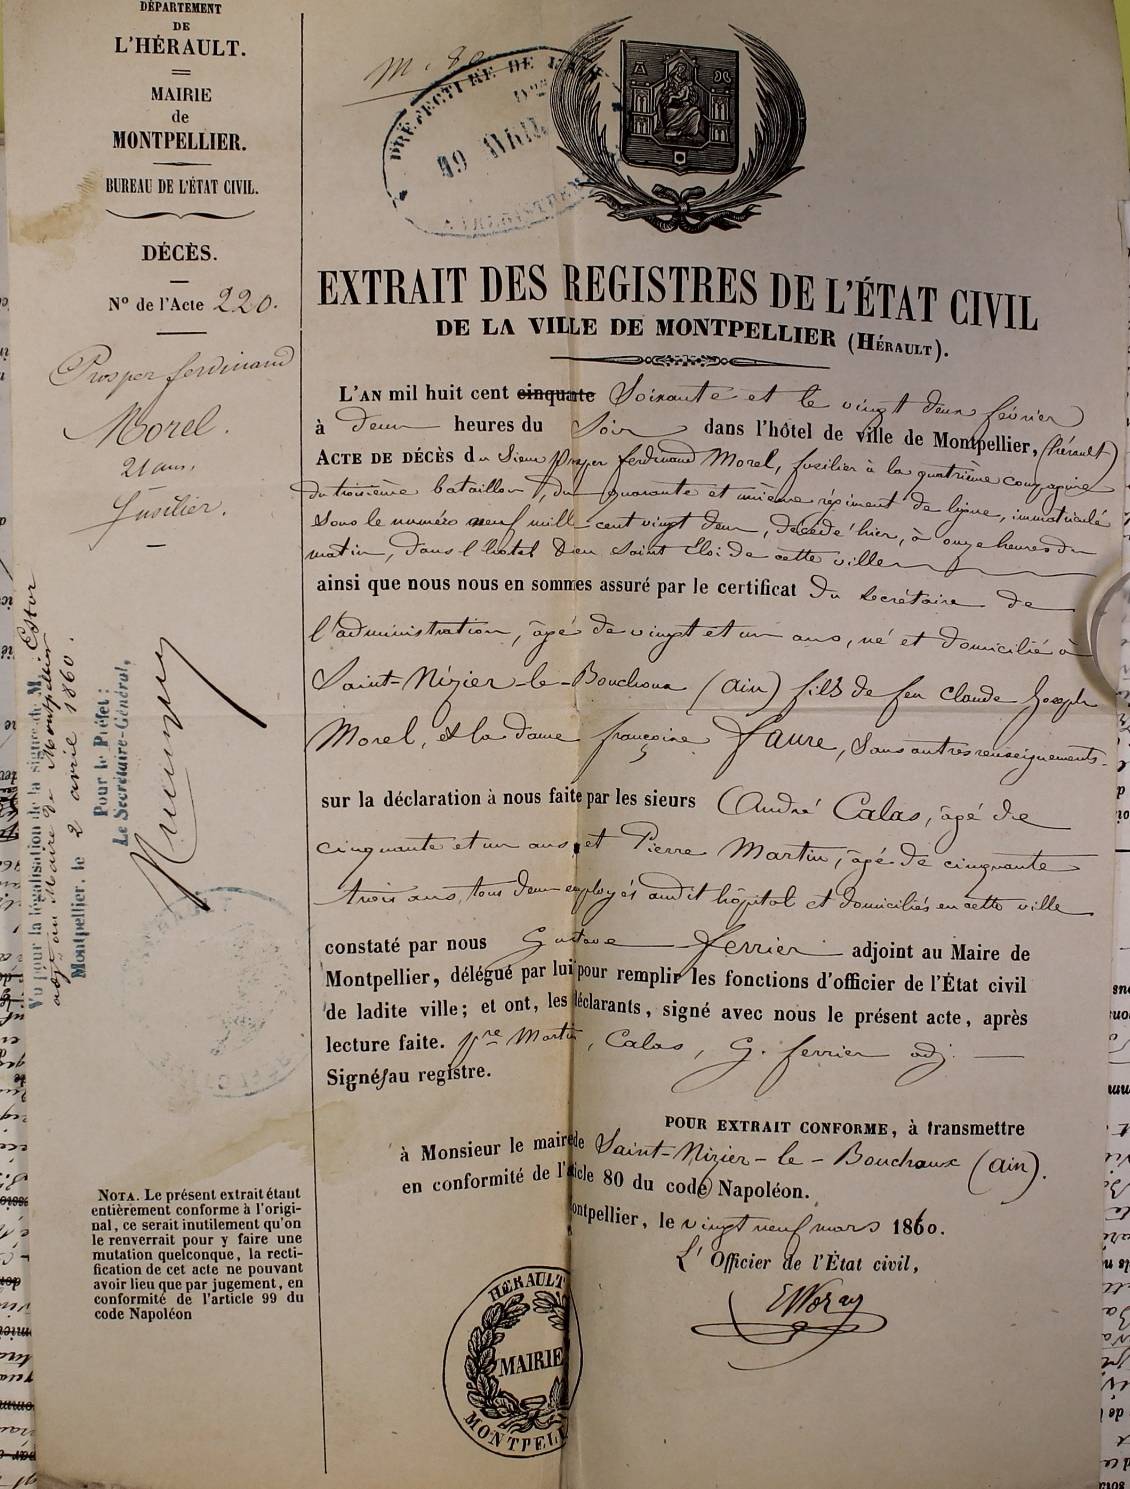 DÉPARTEMENT
DE
L'HÉRAULT.
MAIRIE
de
MONTPELLIER.
BUREAU DE L'ÉTAT CIVIL.
DÉCÈS.
N° de l'Acte 220.
Prosper ferdinand
Morel.
21 ans.
fusilier.
Vu pour la légalisation de la signre de M. Estor
adjt au Maire de Montpellier
Montpellier, le 2 avril 1860.
Pour le Préfet :
Le Secrétaire-Général,
NOTA. Le présent extrait étant
entièrement conforme à l'origi-
nal, ce serait inutilement qu'on
le renverrait pour y faire une
mutation quelconque, la recti-
fication de cet acte ne pouvant
avoir lieu que par jugement, en
conformité de l'article 99 du
code Napoléon
PRÉFECTURE DE L'AIN
19 AVRIL
ENREGISTREMENT
EXTRAIT DES REGISTRES DE L'ÉTAT CIVIL
DE LA VILLE DE MONTPELLIER (HÉRAULT).
L'AN mil huit cent cinquante Soixante et le vingt deux février
à deux heures du Soir dans l'hôtel de ville de Montpellier, (hérault)
ACTE DE DÉCÈS du Sieur prosper ferdinand Morel, fusilier à la quatrième compagnie
du troisième bataillon, du quarante et unième régiment de ligne, immatriculé
sous le numéro neuf mille cent vingt deux, décédé hier, à onze heures du
matin, dans l'hôtel Dieu Saint Eloi de cette ville
ainsi que nous nous en sommes assuré par le certificat du secrétaire de
l'administration, âgé de vingt et un ans, né et domicilié à
Saint-Nizier-le-Bouchoux (ain) fils de feu Claude Joseph
Morel, et la dame françoise Faure, sans autres renseignements.
sur la déclaration à nous faite par les sieurs André Calas, âgé de
cinquante et un ans, et Pierre Martin, âgé de cinquante
trois ans, tous deux employés audit hôpital et domiciliés en cette ville
constaté par nous Gustave ferrier adjoint au Maire de
Montpellier, délégué par lui pour remplir les fonctions d'officier de l'État civil
de ladite ville; et ont, les déclarants, signé avec nous le présent acte, après
lecture faite. Prre Martin, Calas, G. ferrier adj.
Signés au registre.
POUR EXTRAIT CONFORME, à transmettre
à Monsieur le maire de Saint-Nizier-le-Bouchoux (ain).
en conformité de l'article 80 du code Napoléon.
Montpellier, le vingt neuf mars 1860.
L'Officier de l'État civil,
HÉRAULT
MAIRIE
MONTPEL